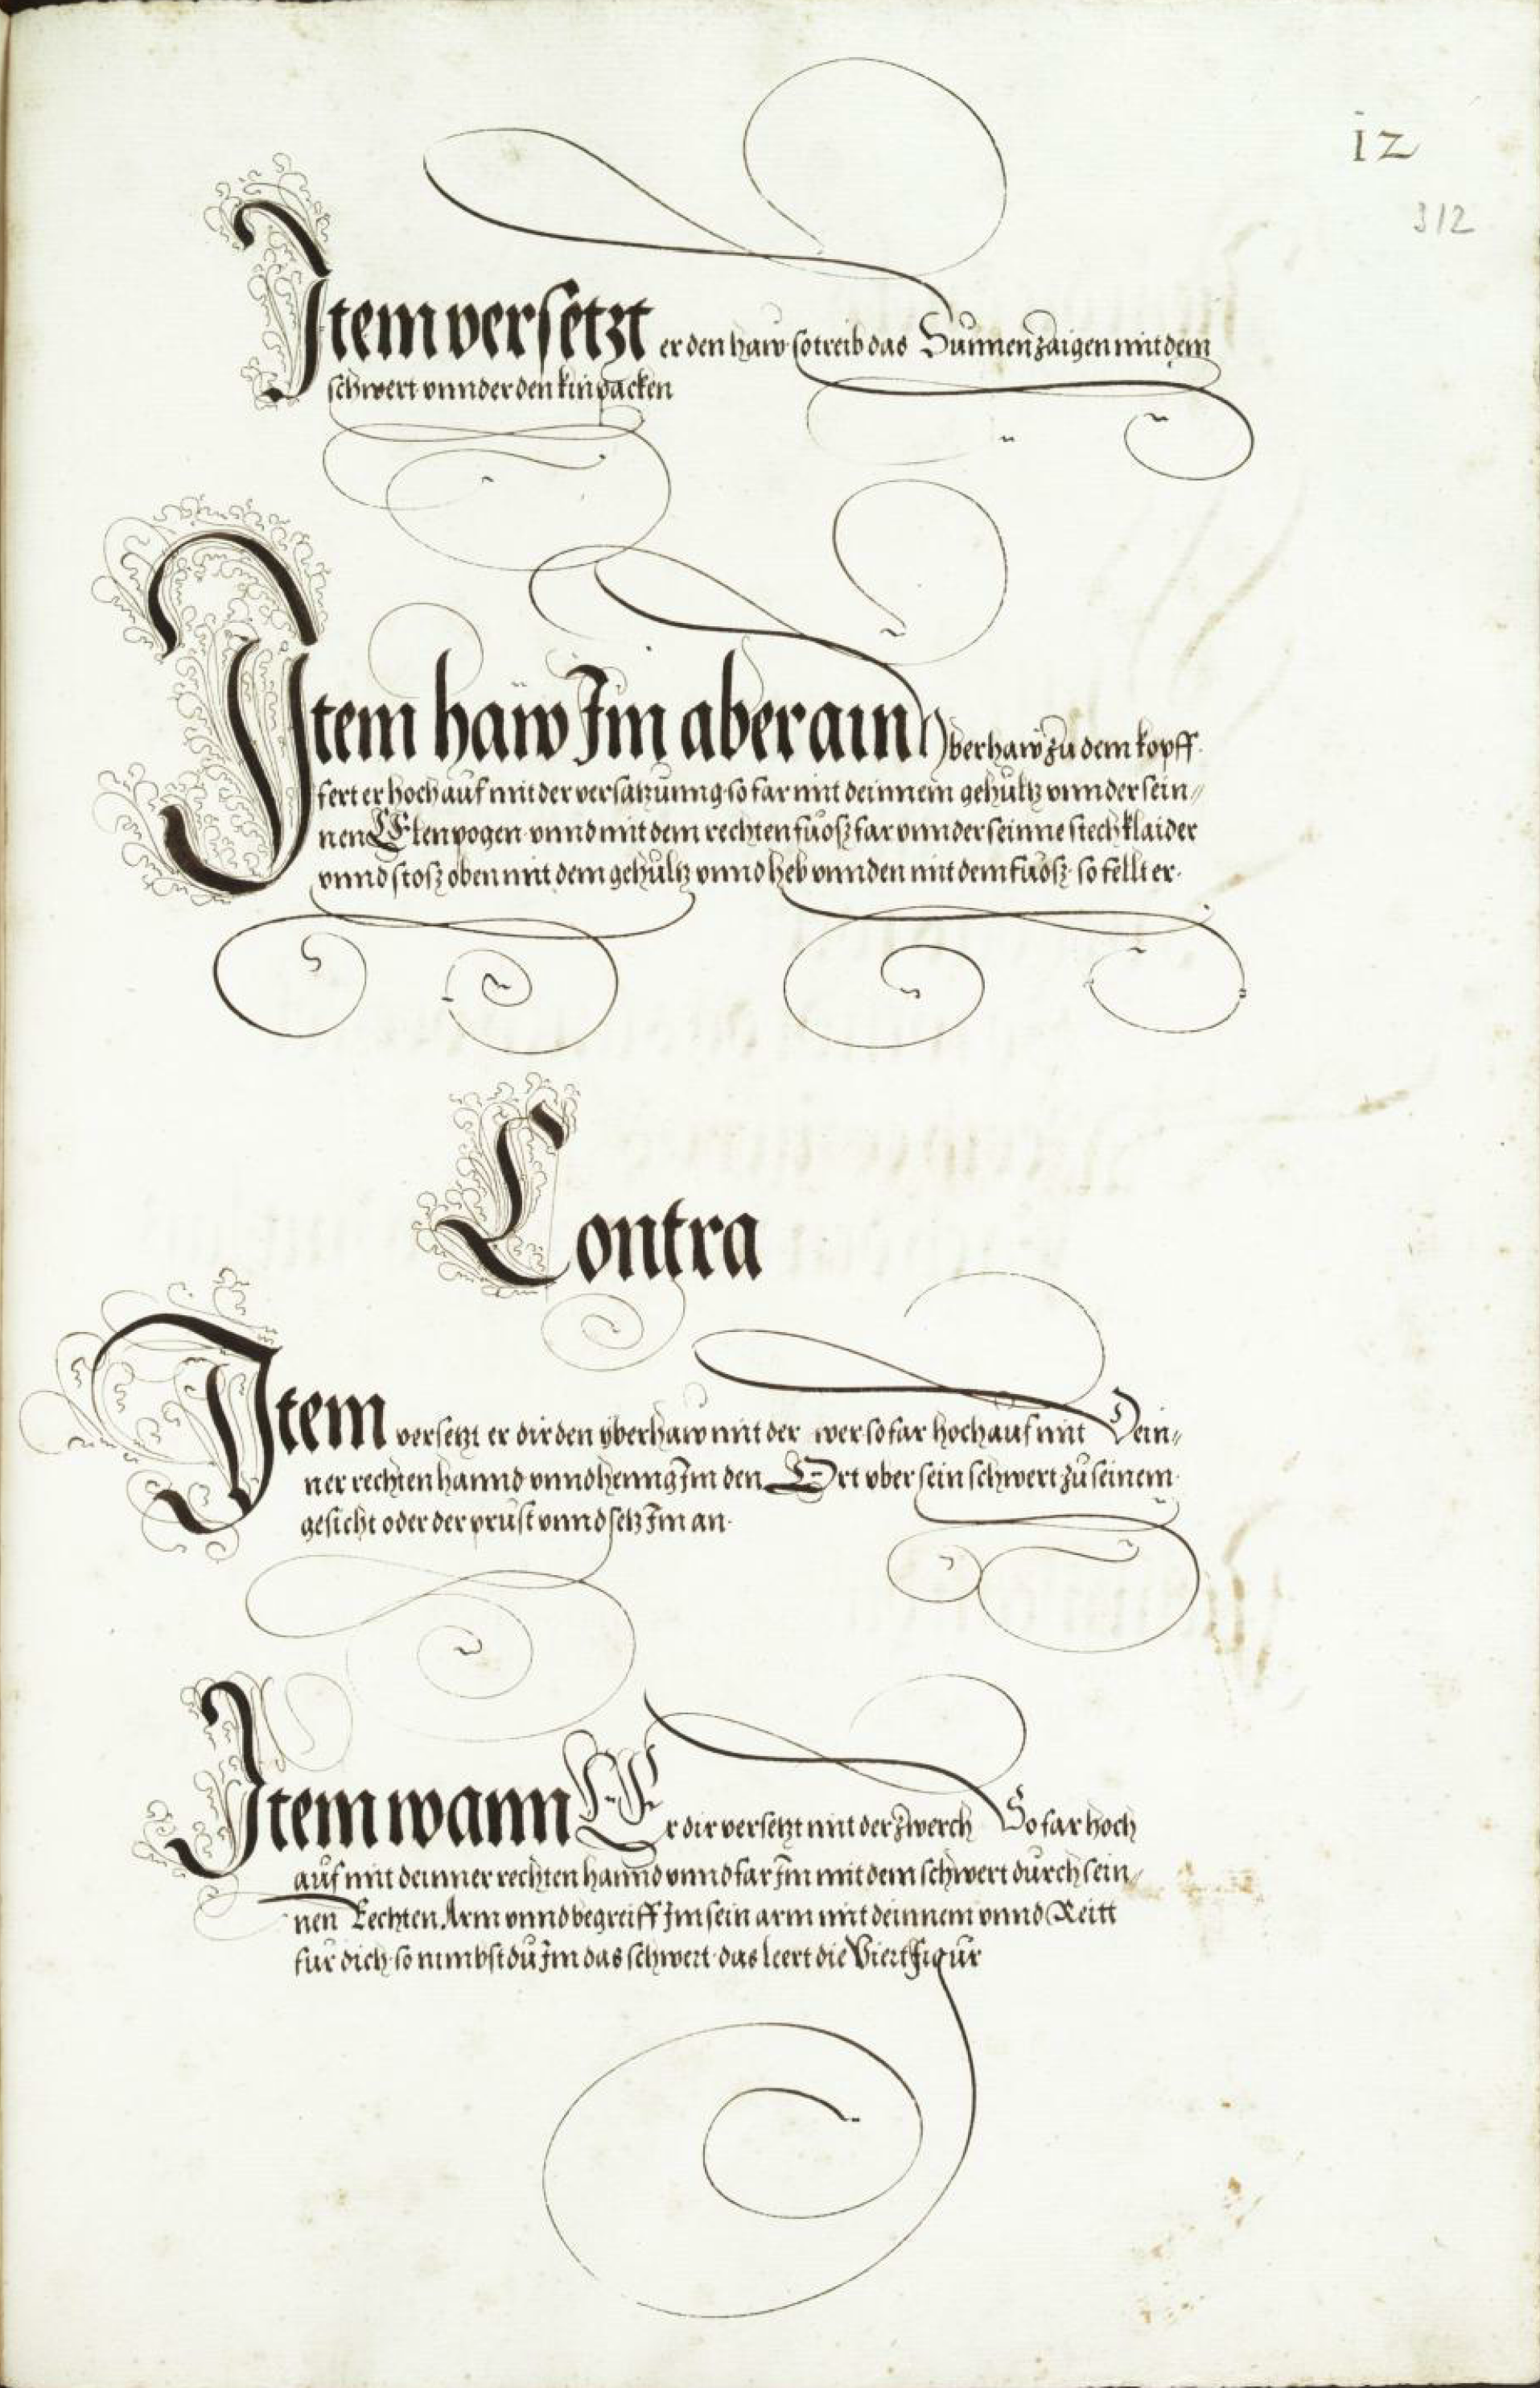 12
312
Item versetzt er den haw so treib das Sunnenzaigen mit dem
schwert vnnder den kinpacken
Item haw Im aber ain Oberhaw zu dem kopff
fert er hoch auf mit der versatzunng so far mit deinnem gehultz vnnder sein〃
nen Elenpogen vnnd mit dem rechten fuosz far vnnder seinne stechklaider
vnnd stosz oben mit dem gehultz vnnd heb vnnden mit dem fuosz so fellt er.
Contra
Item versetzt er dir den yberhaw mit der wer so far hoch auf mit Dein〃
ner rechten hannd vnnd henng Im den Ort vber sein schwert zu seinem
gesicht oder der prust vnnd setz Im an.
Item wann Er dir versetzt mit der zwerch So far hoch
auf mit deinner rechten hannd vnnd far Im mit dem schwert durch sein〃
nen Rechten Arm vnnd begreiff Im sein arm mit deinnem vnnd Reitt
fur dich so nimbst du Im das schwert das leert die Viert figur